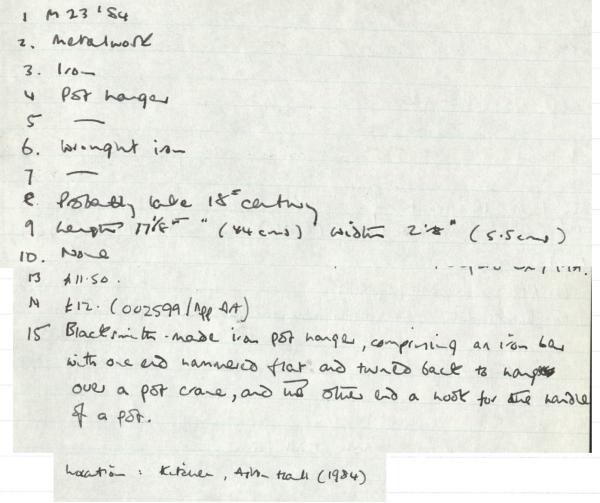 1 M 23 '84
2. Metalwork
3. Iron
4 Pot hanger
5 —
6. Wrought iron
7 —
8. Probably late 18th century
9 Length 17 (44 cms) Width 2 (5.5 cms)
10. None
13 £11.50.
14 £12. (002599/App
15 Blacksmith-made iron pot hanger, comprising an iron bar
with one end hammered flat and turned back to hang
over a pot crane, and the other end a hook for the handle
of a pot.
Location: Kitchen, Hall (1984)